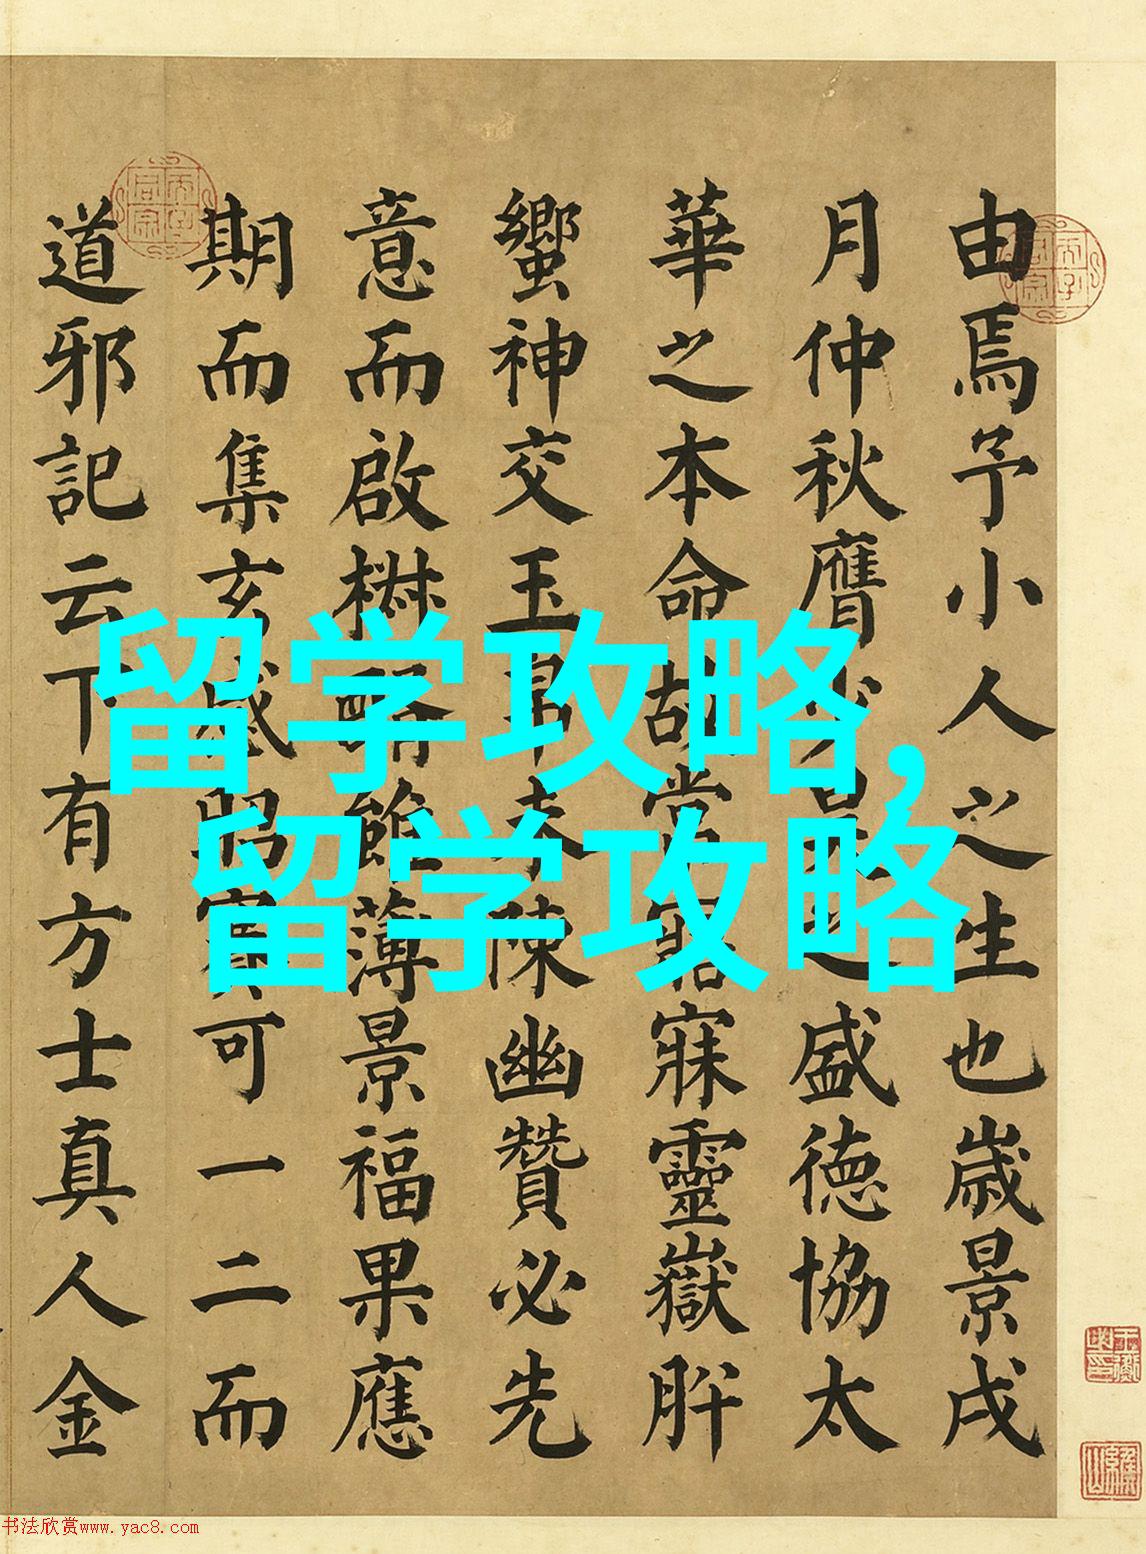 留学攻略,
留学攻略
由焉予小人之生也歲景戌
月仲秋膺之盛德協太
華之本命故常寤寐靈嶽肸
蠁神交玉帛未陳幽贊必先
意而啟醑薄景福果應
期而集玄感昭可一二而
道邪記云下有方士真人金
书法欣赏www.yac8.com